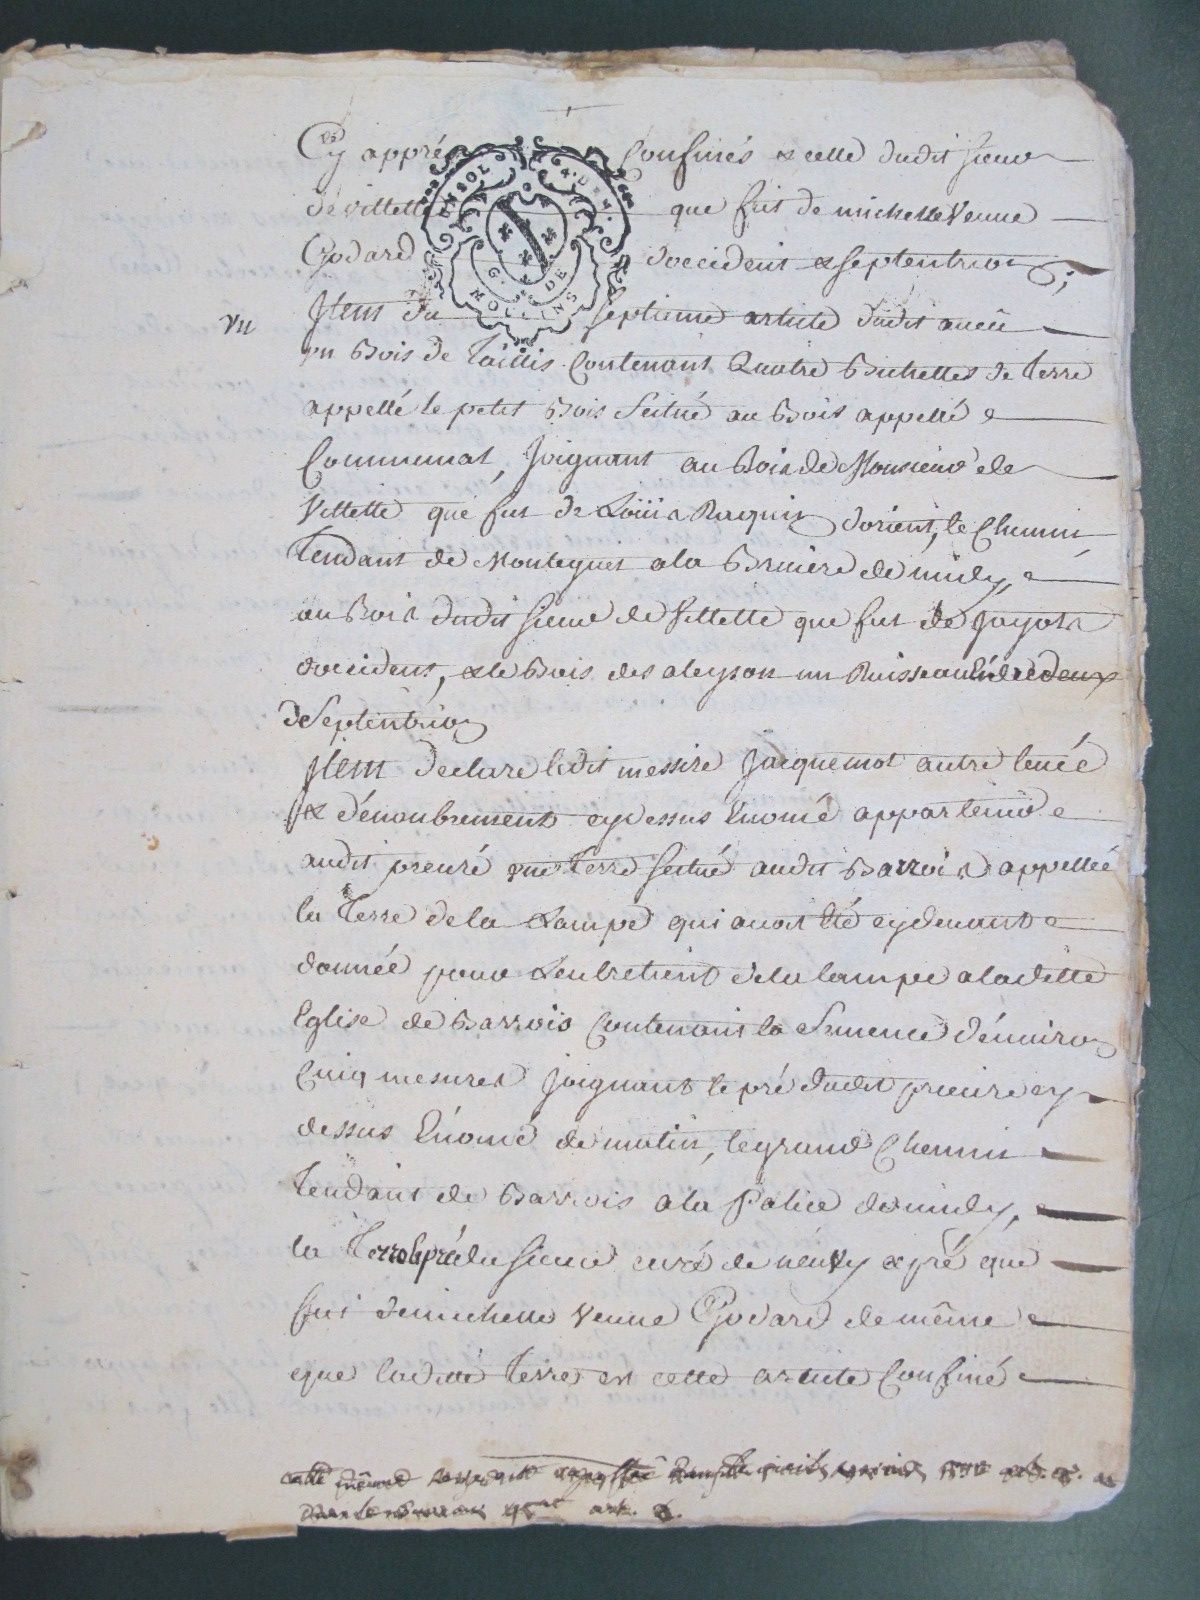 Cy apprés Confinés & celle dudit sieur
de villette que fut de michelle Veuve
Godard doccident & septentrion;
VII
Item du septieme article dudit aveu
un Bois de Taillis Contenant Quatre Bichettes de Terre
appellé le petit Bois Scitué au Bois appellé
Communat, Joignant au Bois de Monsieur de
Villette que fut de Loüis Raquin dorient, le Chemin
Tendant de Montaguet a la Bruiere de midy,
au Bois dudit sieur de Villette que fut de Jayots
doccident, & le Bois des aleyson un Ruisseau Entre deux
de Septentrion
Item declare ledit messire Jacquemot autre tenée
& dénombrement cydessus Enomé appartenir
audit preuré une Terre scitué audit Barrois appellée
la Terre de la Lampe qui avoit Eté cydevant
donnée pour Lentretient de la lampe a ladette
Eglise de Barrois Contenant la Semence dénviron
Cinq mesures Joignant le pré dudit prieuré cy
dessus Énomé de matin, le grand Chemin
Tendant de Barrois a la Palice de midy,
la Terre & pré du sieur curé de neuvy & pré que
fut de michelle Veuve Godard de même
que laditte Terre en cette article Confiné
MOULINS
G. DE
art. 8.